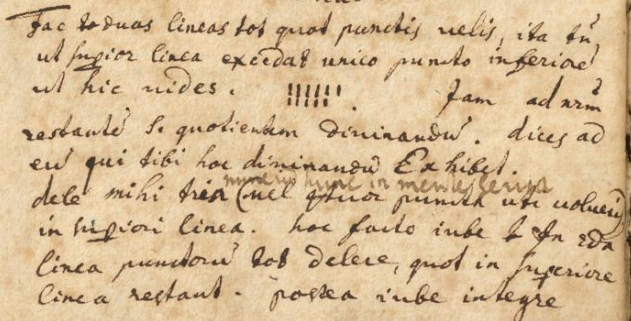 Fac duas lineas tot quot punctis uelis, ita tñ
ut supior linea excedat unico puncto inferiore
ut hic uides. Jam ad nrm̃
restante S. quotientem diuinandũ. dices ad
eũ qui tibi hoc diuinandũ Exhibet.
dele mihi tria (uel quor puncta uti uolueris)
in supiori linea. hoc facto iube in
linea punctorũ tot delere, quot in superiore
linea restant. postea iube integre